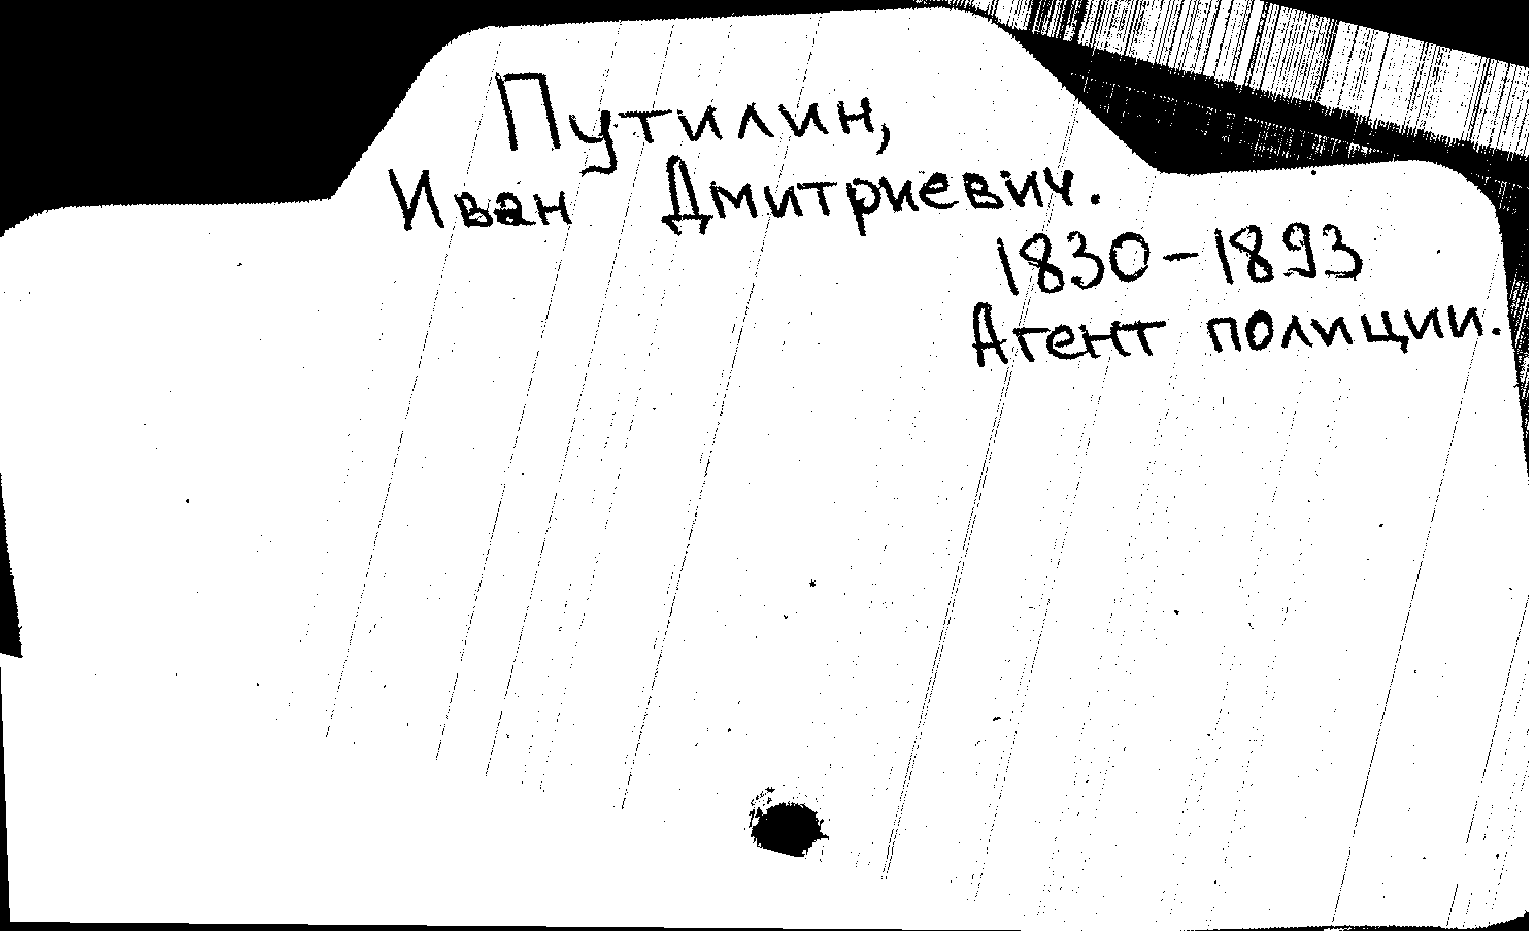 Путилин,
Иван Дмитриевич.
1830-1893
Агент полиции.